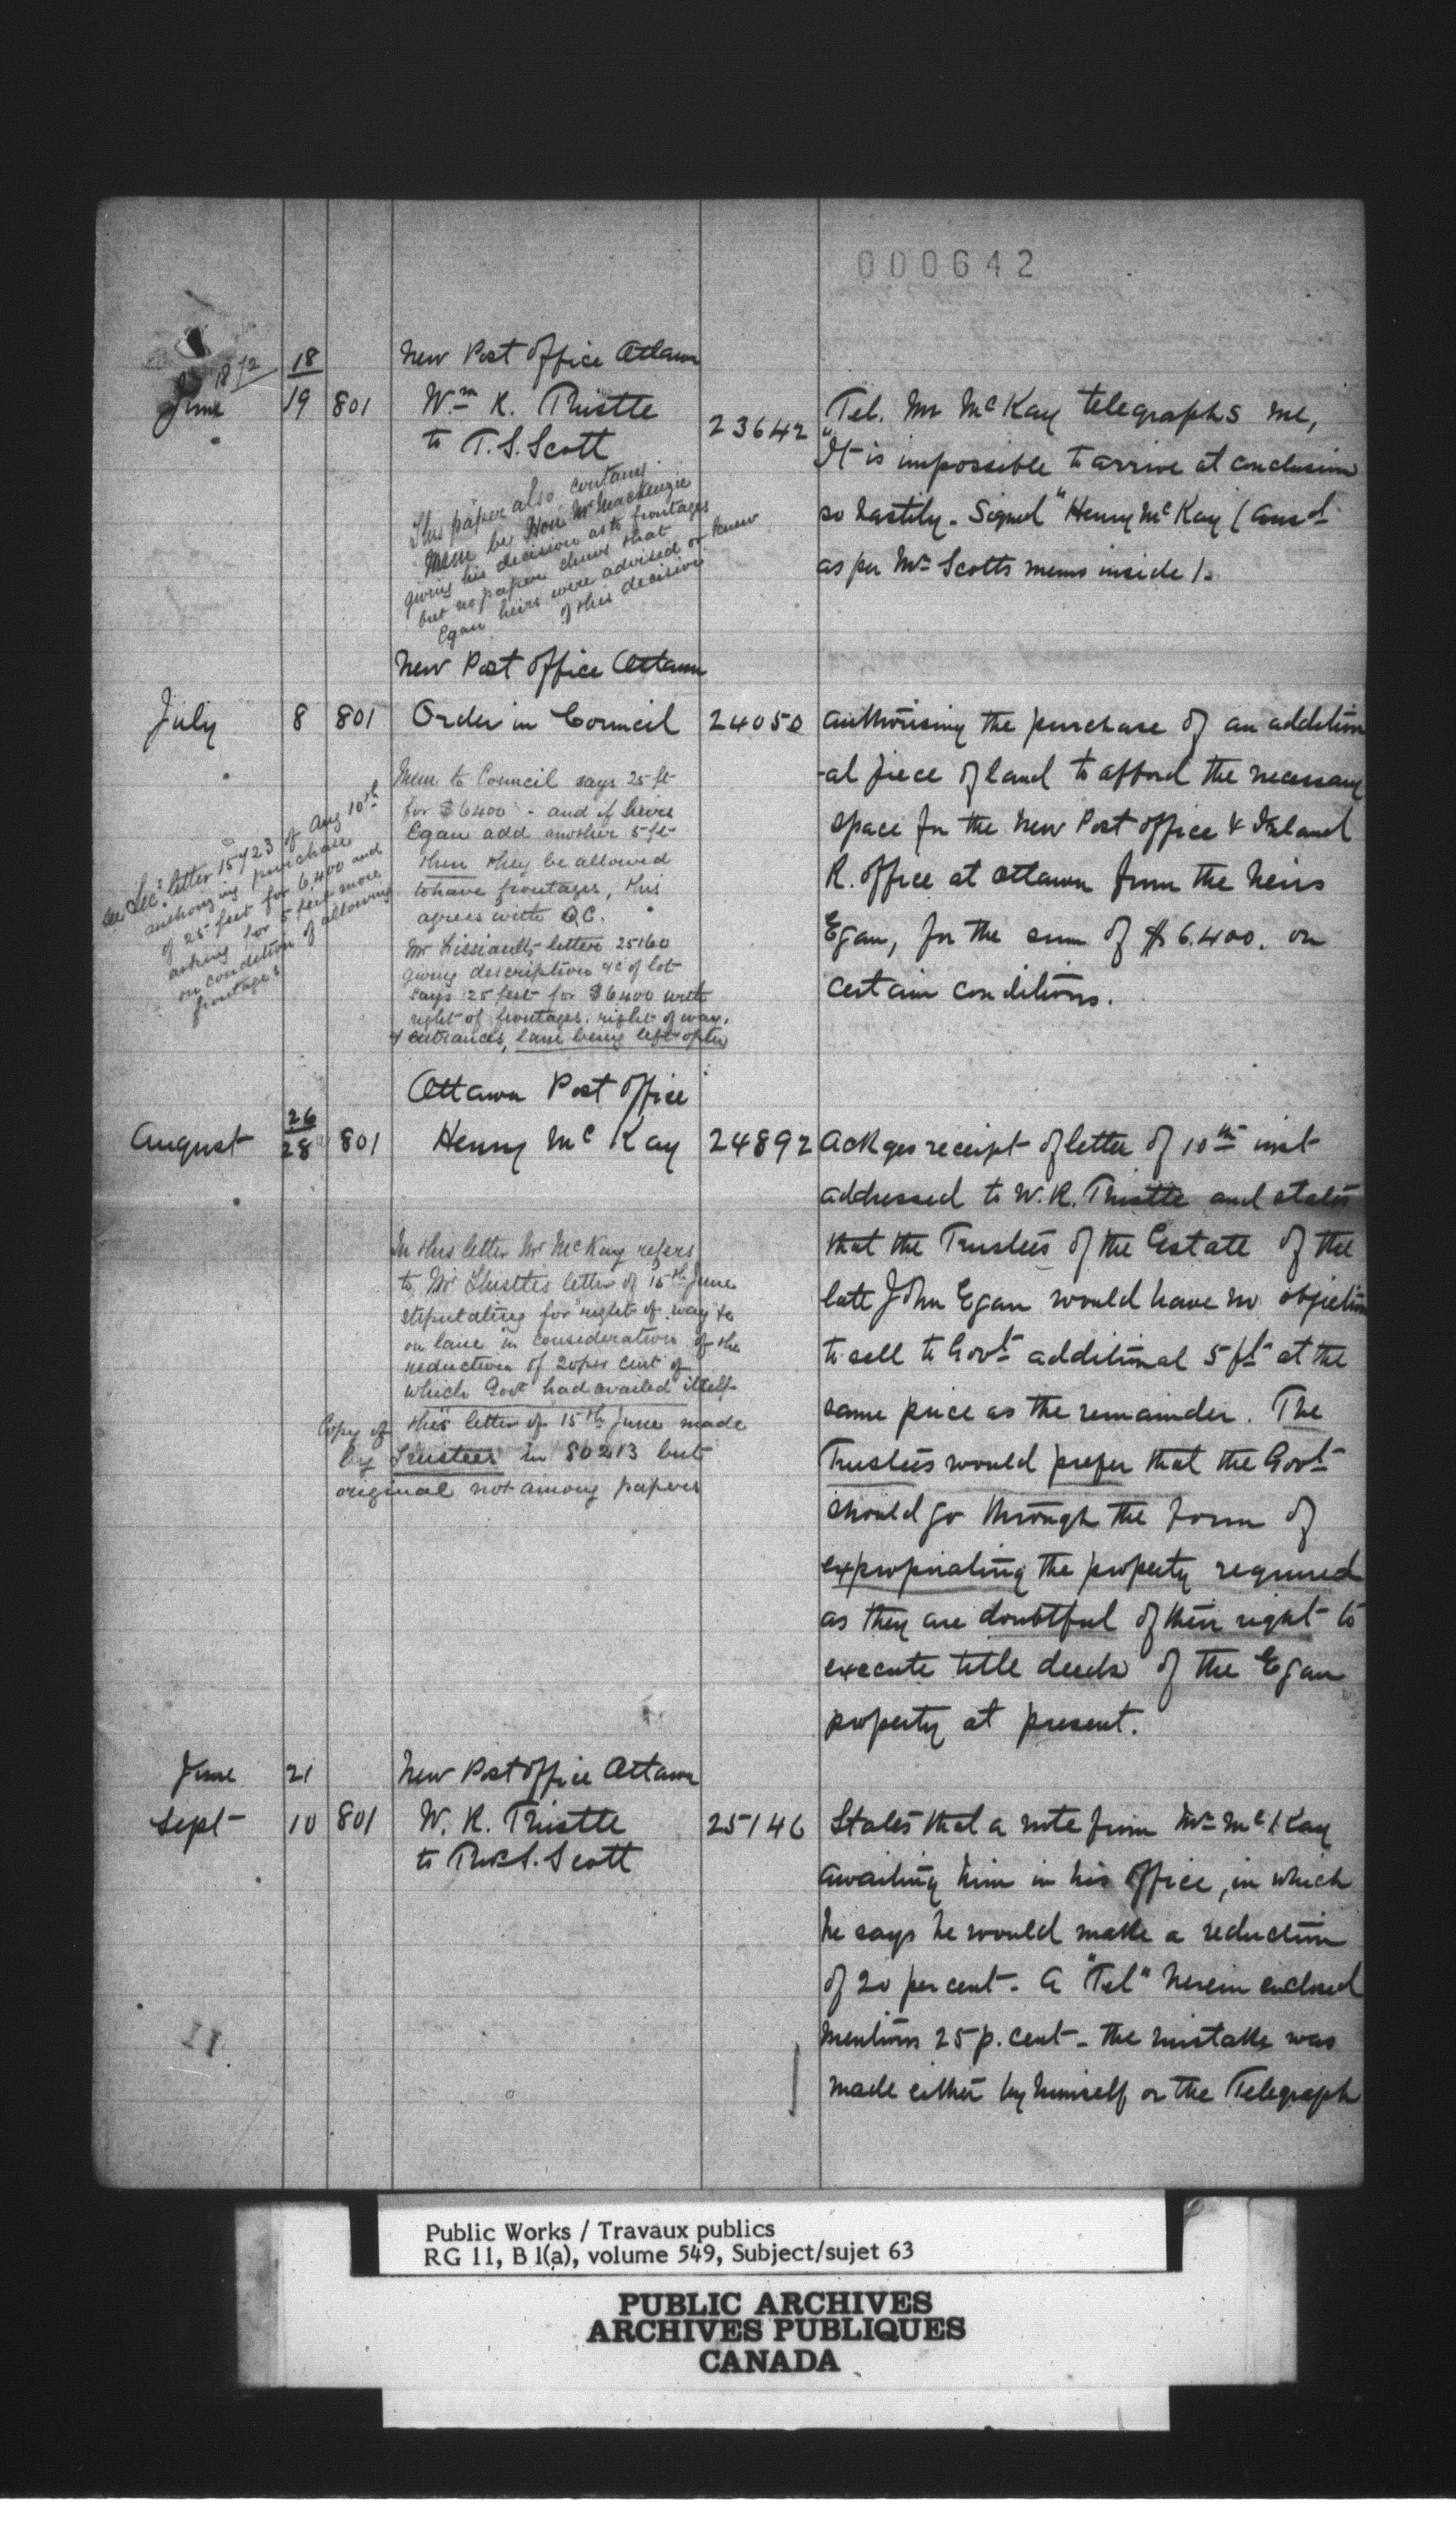 000642
1872
18
New Post Office Ottawa
June 19 801 Wm R. Thistle 23642 Tel. Mr McKay telegraphs me,
to T.S. Scott "It is impossible to arrive at conclusion
so hastily - Signed "Henry McKay (ansd
as per Mr Scotts memo inside).
This paper also contains
Mem by Hon Mr Mackenzie
giving his decision as to frontages
but no paper shews that
Egan heirs were advised or knew
of this decision
New Post Office Ottawa
July 8 801 Order in Council 24050 authorising the purchase of an addition
-al piece of land to afford the necessary
space for the New Post office & Inland
R. Office at Ottawa from the heirs
Egan, for the sum of $6.400. on
certain conditions.
Mem to Council says 25 ft
for $6400 - and if heirs
Egan add another 5 ft
then they be allowed
to have frontages, this
agrees with O.C.
Mr Lissiault's letter 25160
giving description &c of lot
says 25 feet for $6400 with
right of frontages, right of way,
& entrances, lane being left open
See Secs letter 15723 of Aug 10th
authorizing purchase
of 25 feet for 6400 and
asking for 5 feet more
on condition of allowing
frontages
Ottawa Post Office
26
August 28 801 Henry McKay 24892 Ackges receipt of letter of 10th inst
addressed to W.R. Thistle and states
that the Trustees of the Estate of the
late John Egan would have no objection
to sell to Govt additional 5 ft at the
same price as the remainder. The
Trustees would prefer that the Govt
should go through the form of
expropriating the property required
as they are doubtful of their right to
execute title deeds of the Egan
property at present.
In this letter Mr McKay refers
to Mr Thistles letter of 15th June
stipulating for "right of way &c
on lane" in consideration of the
reduction of 20 per cent of
which Govt had availed itself
Copy of this letter of 15th June made
by Trustees in 80213 but
original not among papers
June 21 New Post Office Ottawa
Sept 10 801 W. R. Thistle 25146 States that a note from Mr McKay
to Thos S. Scott awaiting him in his office, in which
he says he would make a reduction
of 20 per cent - A "Tel" herein enclosed
mentions 25 p. cent - the mistake was
made either by himself or the Telegraph
11
Public Works / Travaux publics
RG 11, B 1(a), volume 549, Subject/sujet 63
PUBLIC ARCHIVES
ARCHIVES PUBLIQUES
CANADA